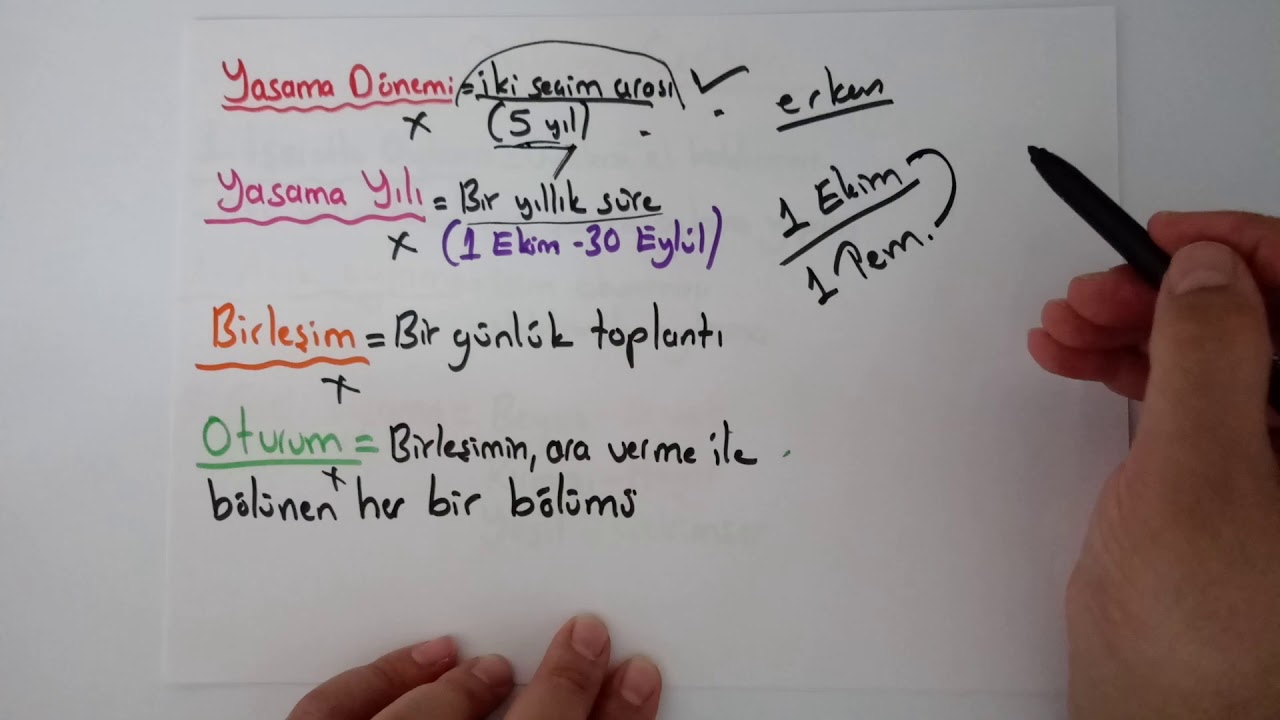 Yasama Dönemi = iki seçim arası
(5 yıl)
erken
Yasama Yılı = Bir yıllık süre
(1 Ekim - 30 Eylül)
1 Ekim
1 Pem.
Birleşim = Bir günlük toplantı
Oturum = Birleşimin, ara verme ile
bölünen her bir bölümü